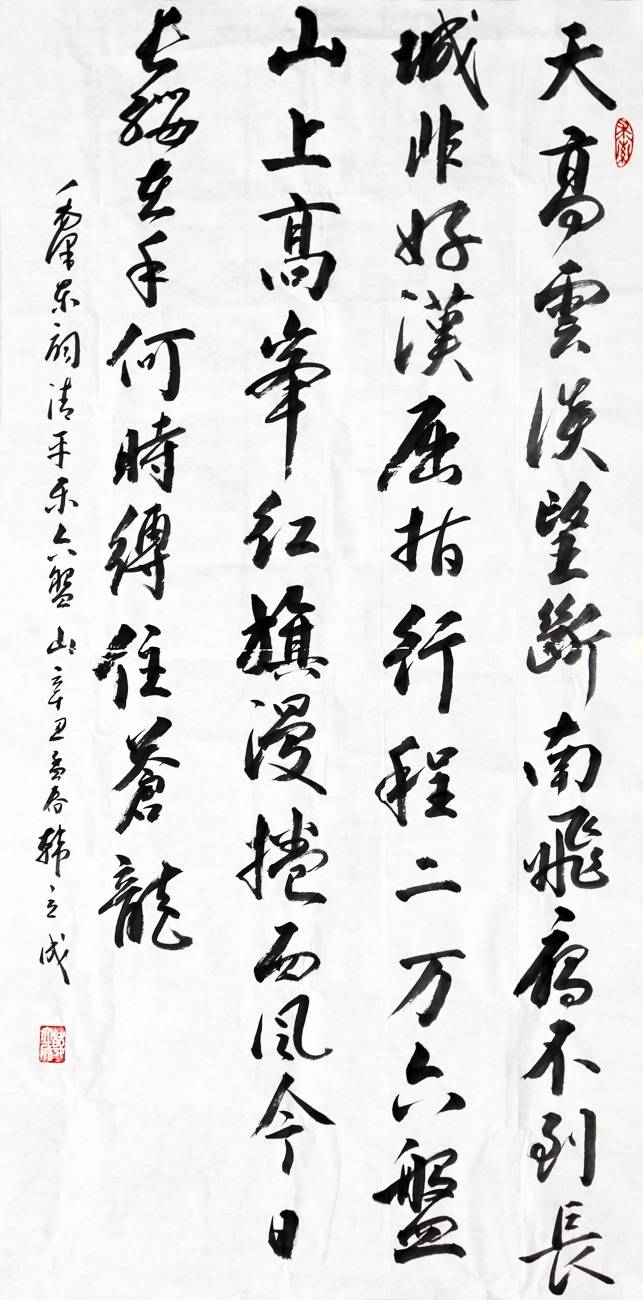 天高雲淡望斷南飛雁不到長
城非好漢屈指行程二万六盤
山上高峯红旗漫捲西风今日
长缨在手何時縛住蒼龍
毛泽东词清平乐六盤山辛丑孟春韩立成